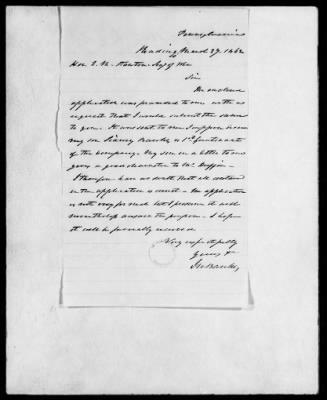 Pennsylvania
Reading March 27, 1862
Hon E. M. Stanton Secy of War
Sir
The enclosed
application was forwarded to me with a
request that I would submit the same
to you. It was sent to me I suppose because
my son Banks is 1st Lieutenant
of the company. My son in a letter to me
gives a good character to Mr.
I therefore have no doubt that all contained
in the application is correct. The application
is not very formal but I presume it will
nevertheless answer the purpose. I hope
it will be favorably received
Very respectfully
Yours &
Banks